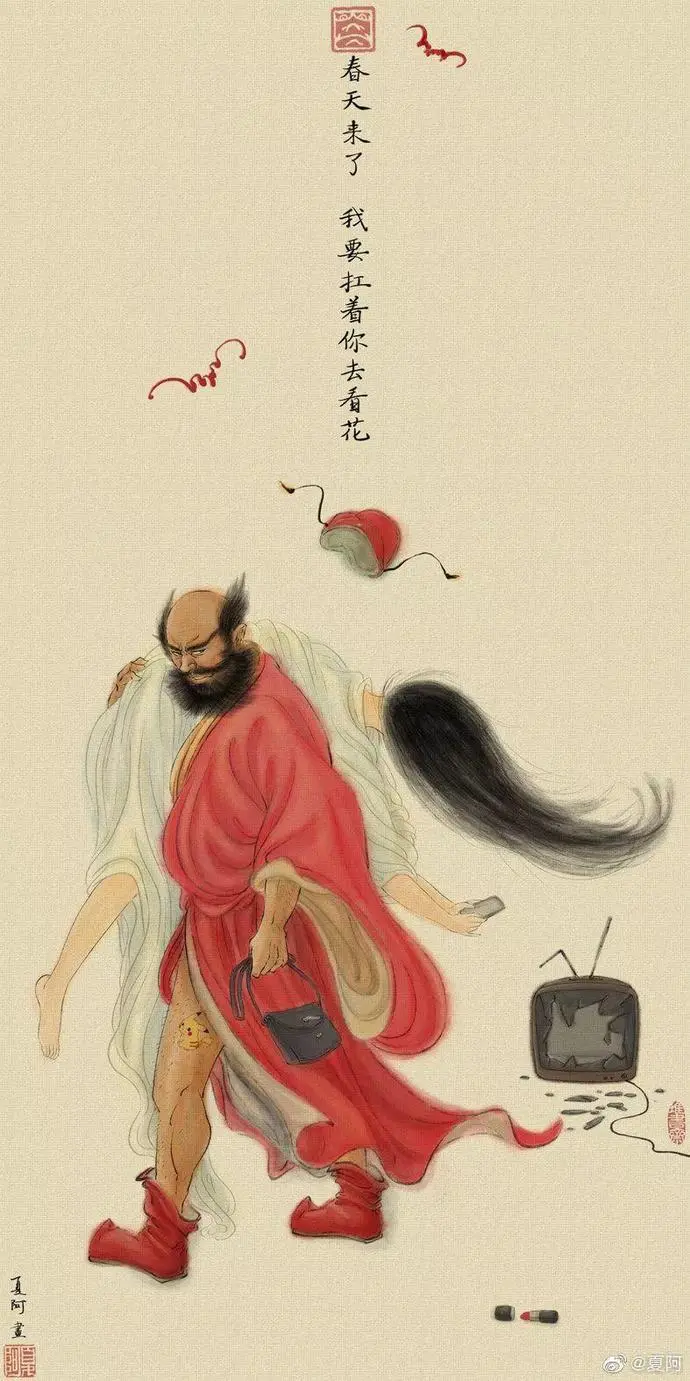 春天来了 我要扛着你去看花
夏阿画
@夏阿